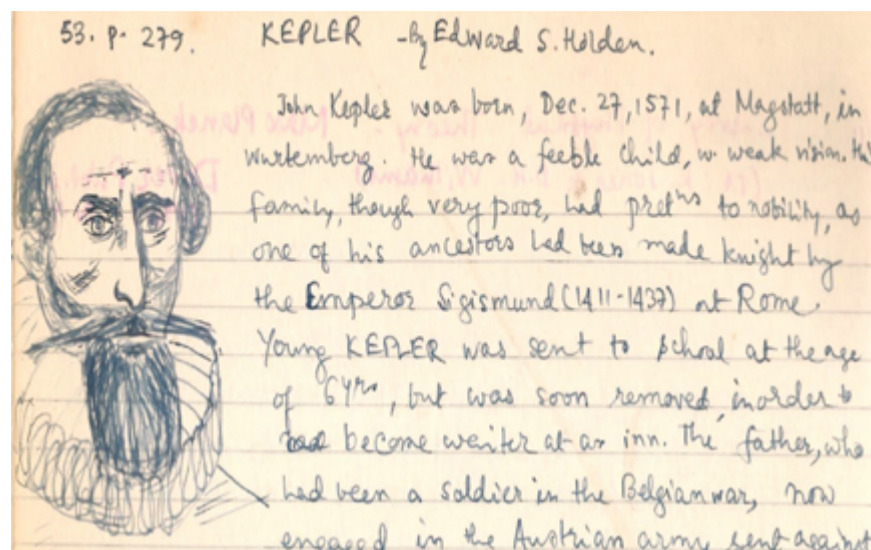 53. p. 279. KEPLER - By Edward S. Holden.
John Kepler was born, Dec. 27, 1571, at Magstatt, in
Wurtemberg. He was a feeble child, w. weak vision. His
family, though very poor, had pret^ns to nobility, as
one of his ancestors had been made knight by
the Emperor Sigismund (1411-1437) at Rome.
Young KEPLER was sent to school at the age
of 6 yrs, but was soon removed, in order to
become waiter at an inn. The father, who
had been a soldier in the Belgian war, now
engaged in the Austrian army sent against